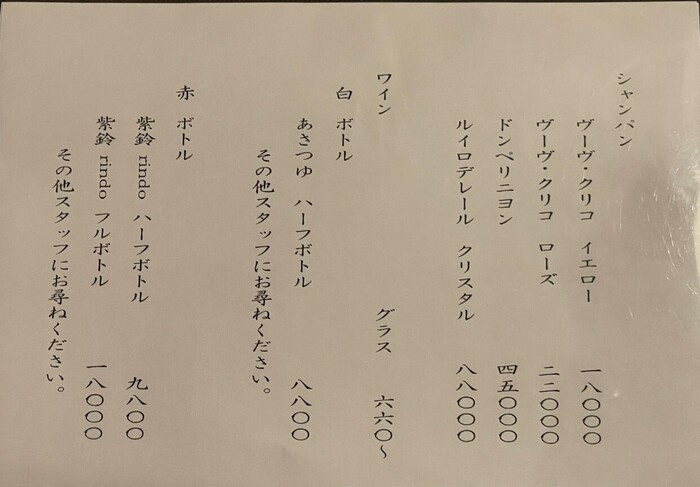 シャンパン
ヴーヴ・クリコ イエロー 一八〇〇〇
ヴーヴ・クリコ ローズ 二二〇〇〇
ドンペリニヨン 四五〇〇〇
ルイロデレール クリスタル 八八〇〇〇
ワイン グラス 六六〇～
白 ボトル
あさつゆ ハーフボトル 八八〇〇
その他スタッフにお尋ねください。
赤 ボトル
紫鈴 rindo ハーフボトル 九八〇〇
紫鈴 rindo フルボトル 一八〇〇〇
その他スタッフにお尋ねください。